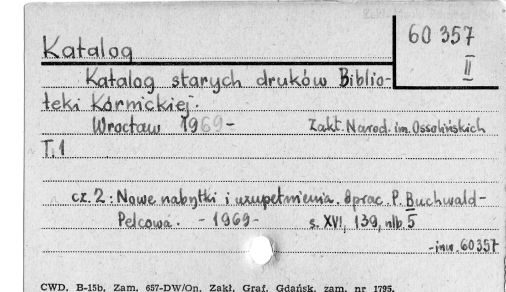 60 357
II
Katalog
Katalog starych druków Biblio-
teki Kórnickiej.
Wrocław 1969- Zakł. Narod. im. Ossolińskich
T. 1
cz. 2: Nowe nabytki i uzupełnienia. Oprac. P. Buchwald-
Pelcowa. - 1969- s. XVI, 139, nlb. 5
-inw. 60357
CWD, B-15b, Zam. 657-DW/On. Zakł. Graf. Gdańsk, zam. nr 1795.